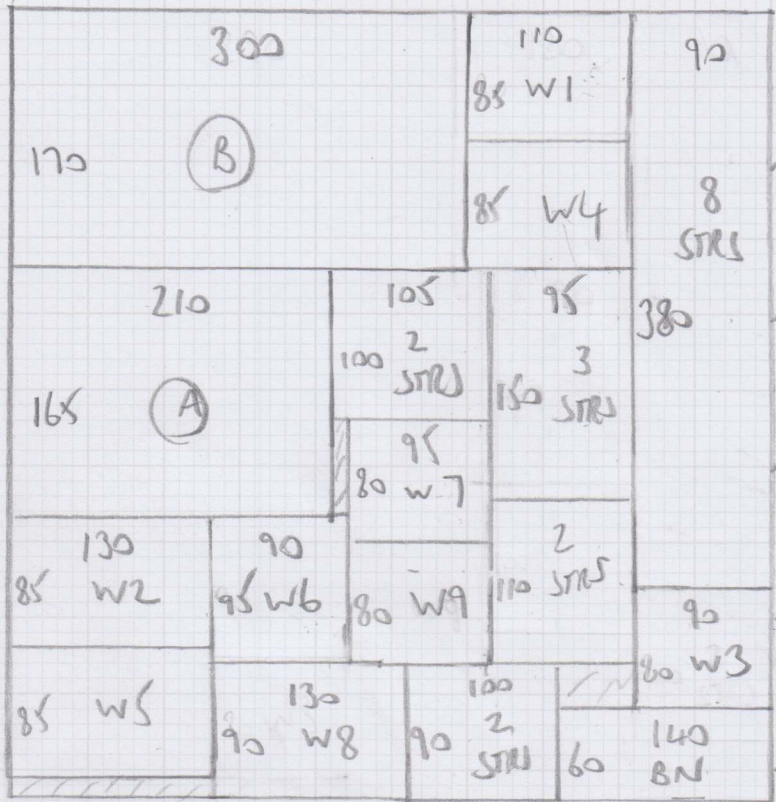 300
170
B
110
85 W1
85 W4
90
8
STRS
380
210
165
A
105
100 2
STRS
95
3
150 STRS
95
80 W7
130
85 W2
90
95 W6
80 W9
2
110 STRS
90
80 W3
85 W5
130
90 W8
100
90 2
STRS
140
60 BN